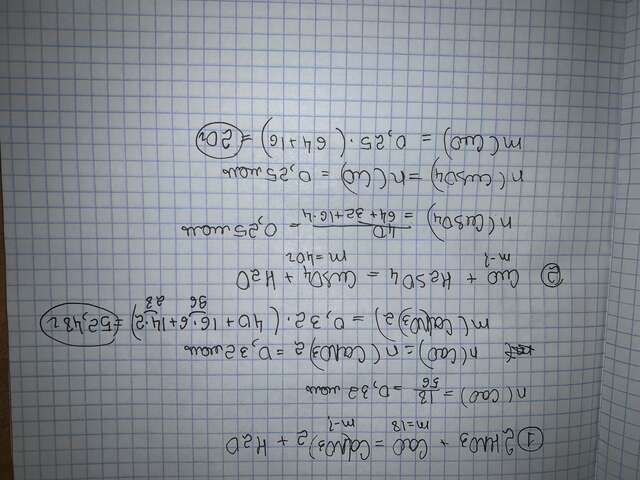 ① 2HNO3 + CaO = Ca(NO3)2 + H2O
m=18 m-?
n(CaO) = 18/56 = 0,32 моль
n(CaO) = n(Ca(NO3)2 = 0,32 моль
m(Ca(NO3)2) = 0,32·(40+16+16·6+14·2) = 52,48г
96 28
② CuO + H2SO4 = CuSO4 + H2O
m-? m=40г
n(CuSO4) = 40/64+32+16·4 = 0,25 моль
n(CuSO4) = n(CuO) = 0,25 моль
m(CuO) = 0,25·(64+16) = 20г